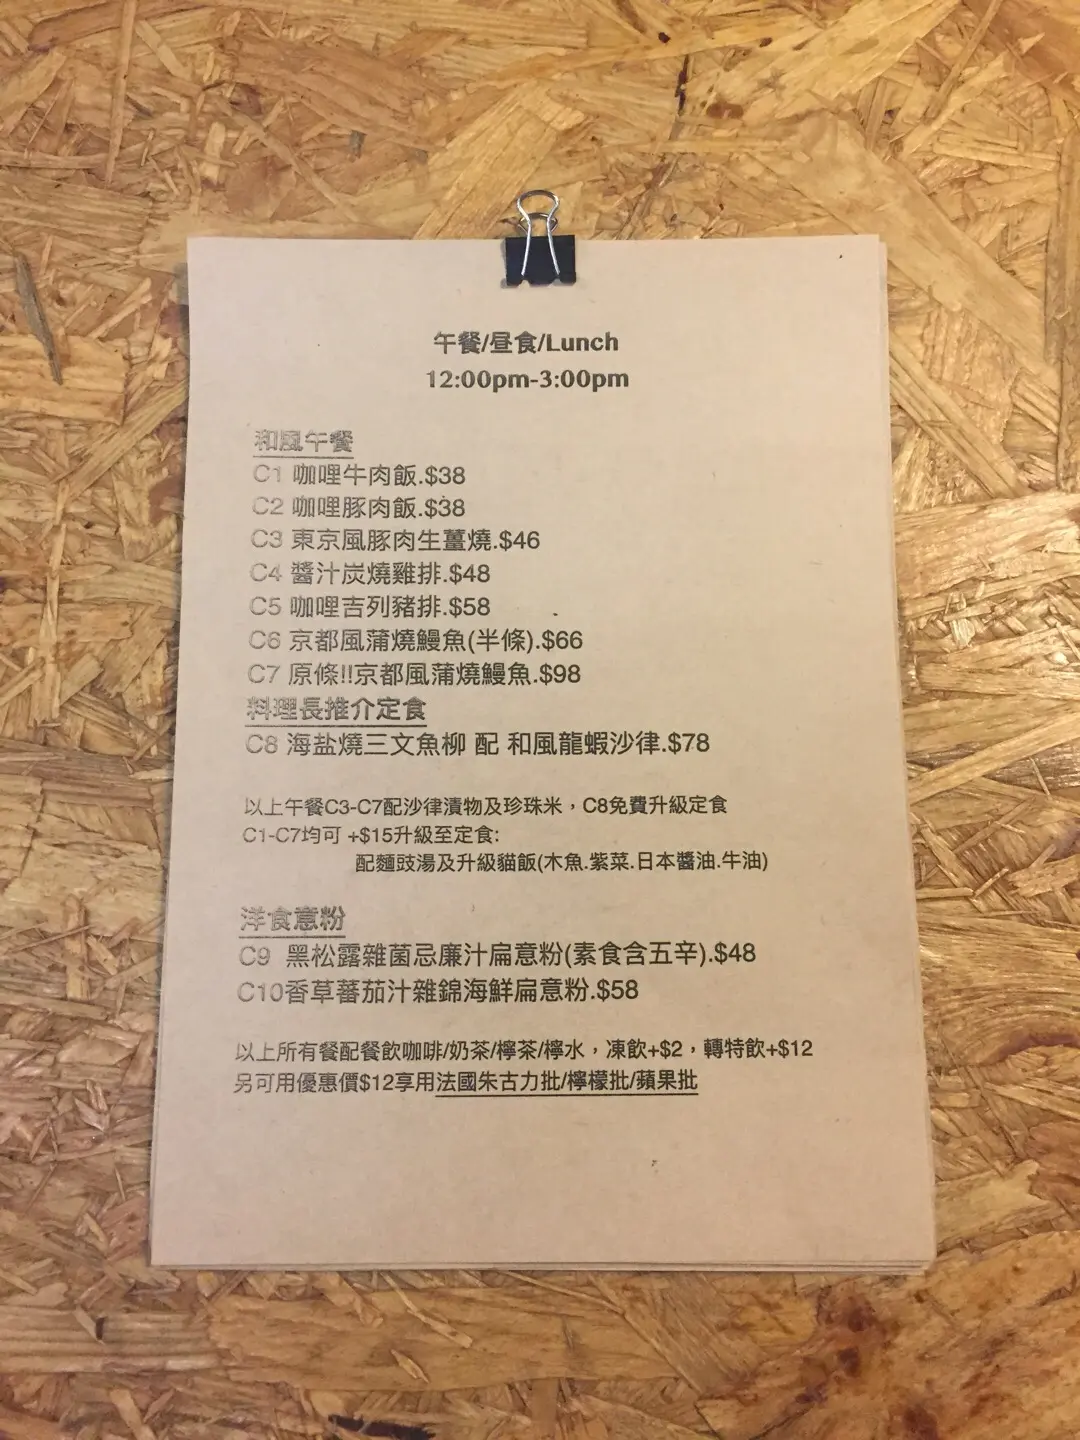 午餐/昼食/Lunch
12:00pm-3:00pm
和風午餐
C1 咖哩牛肉飯.$38
C2 咖哩豚肉飯.$38
C3 東京風豚肉生薑燒.$46
C4 醬汁炭燒雞排.$48
C5 咖哩吉列豬排.$58
C6 京都風蒲燒鰻魚(半條).$66
C7 原條!!京都風蒲燒鰻魚.$98
料理長推介定食
C8 海盐燒三文魚柳 配 和風龍蝦沙律.$78
以上午餐C3-C7配沙律漬物及珍珠米，C8免費升級定食
C1-C7均可 +$15升級至定食:
配麵豉湯及升級貓飯(木魚.紫菜.日本醬油.牛油)
洋食意粉
C9 黑松露雜菌忌廉汁扁意粉(素食含五辛).$48
C10香草蕃茄汁雜錦海鮮扁意粉.$58
以上所有餐配餐飲咖啡/奶茶/檸茶/檸水，凍飲+$2，轉特飲+$12
另可用優惠價$12享用法國朱古力批/檸檬批/蘋果批